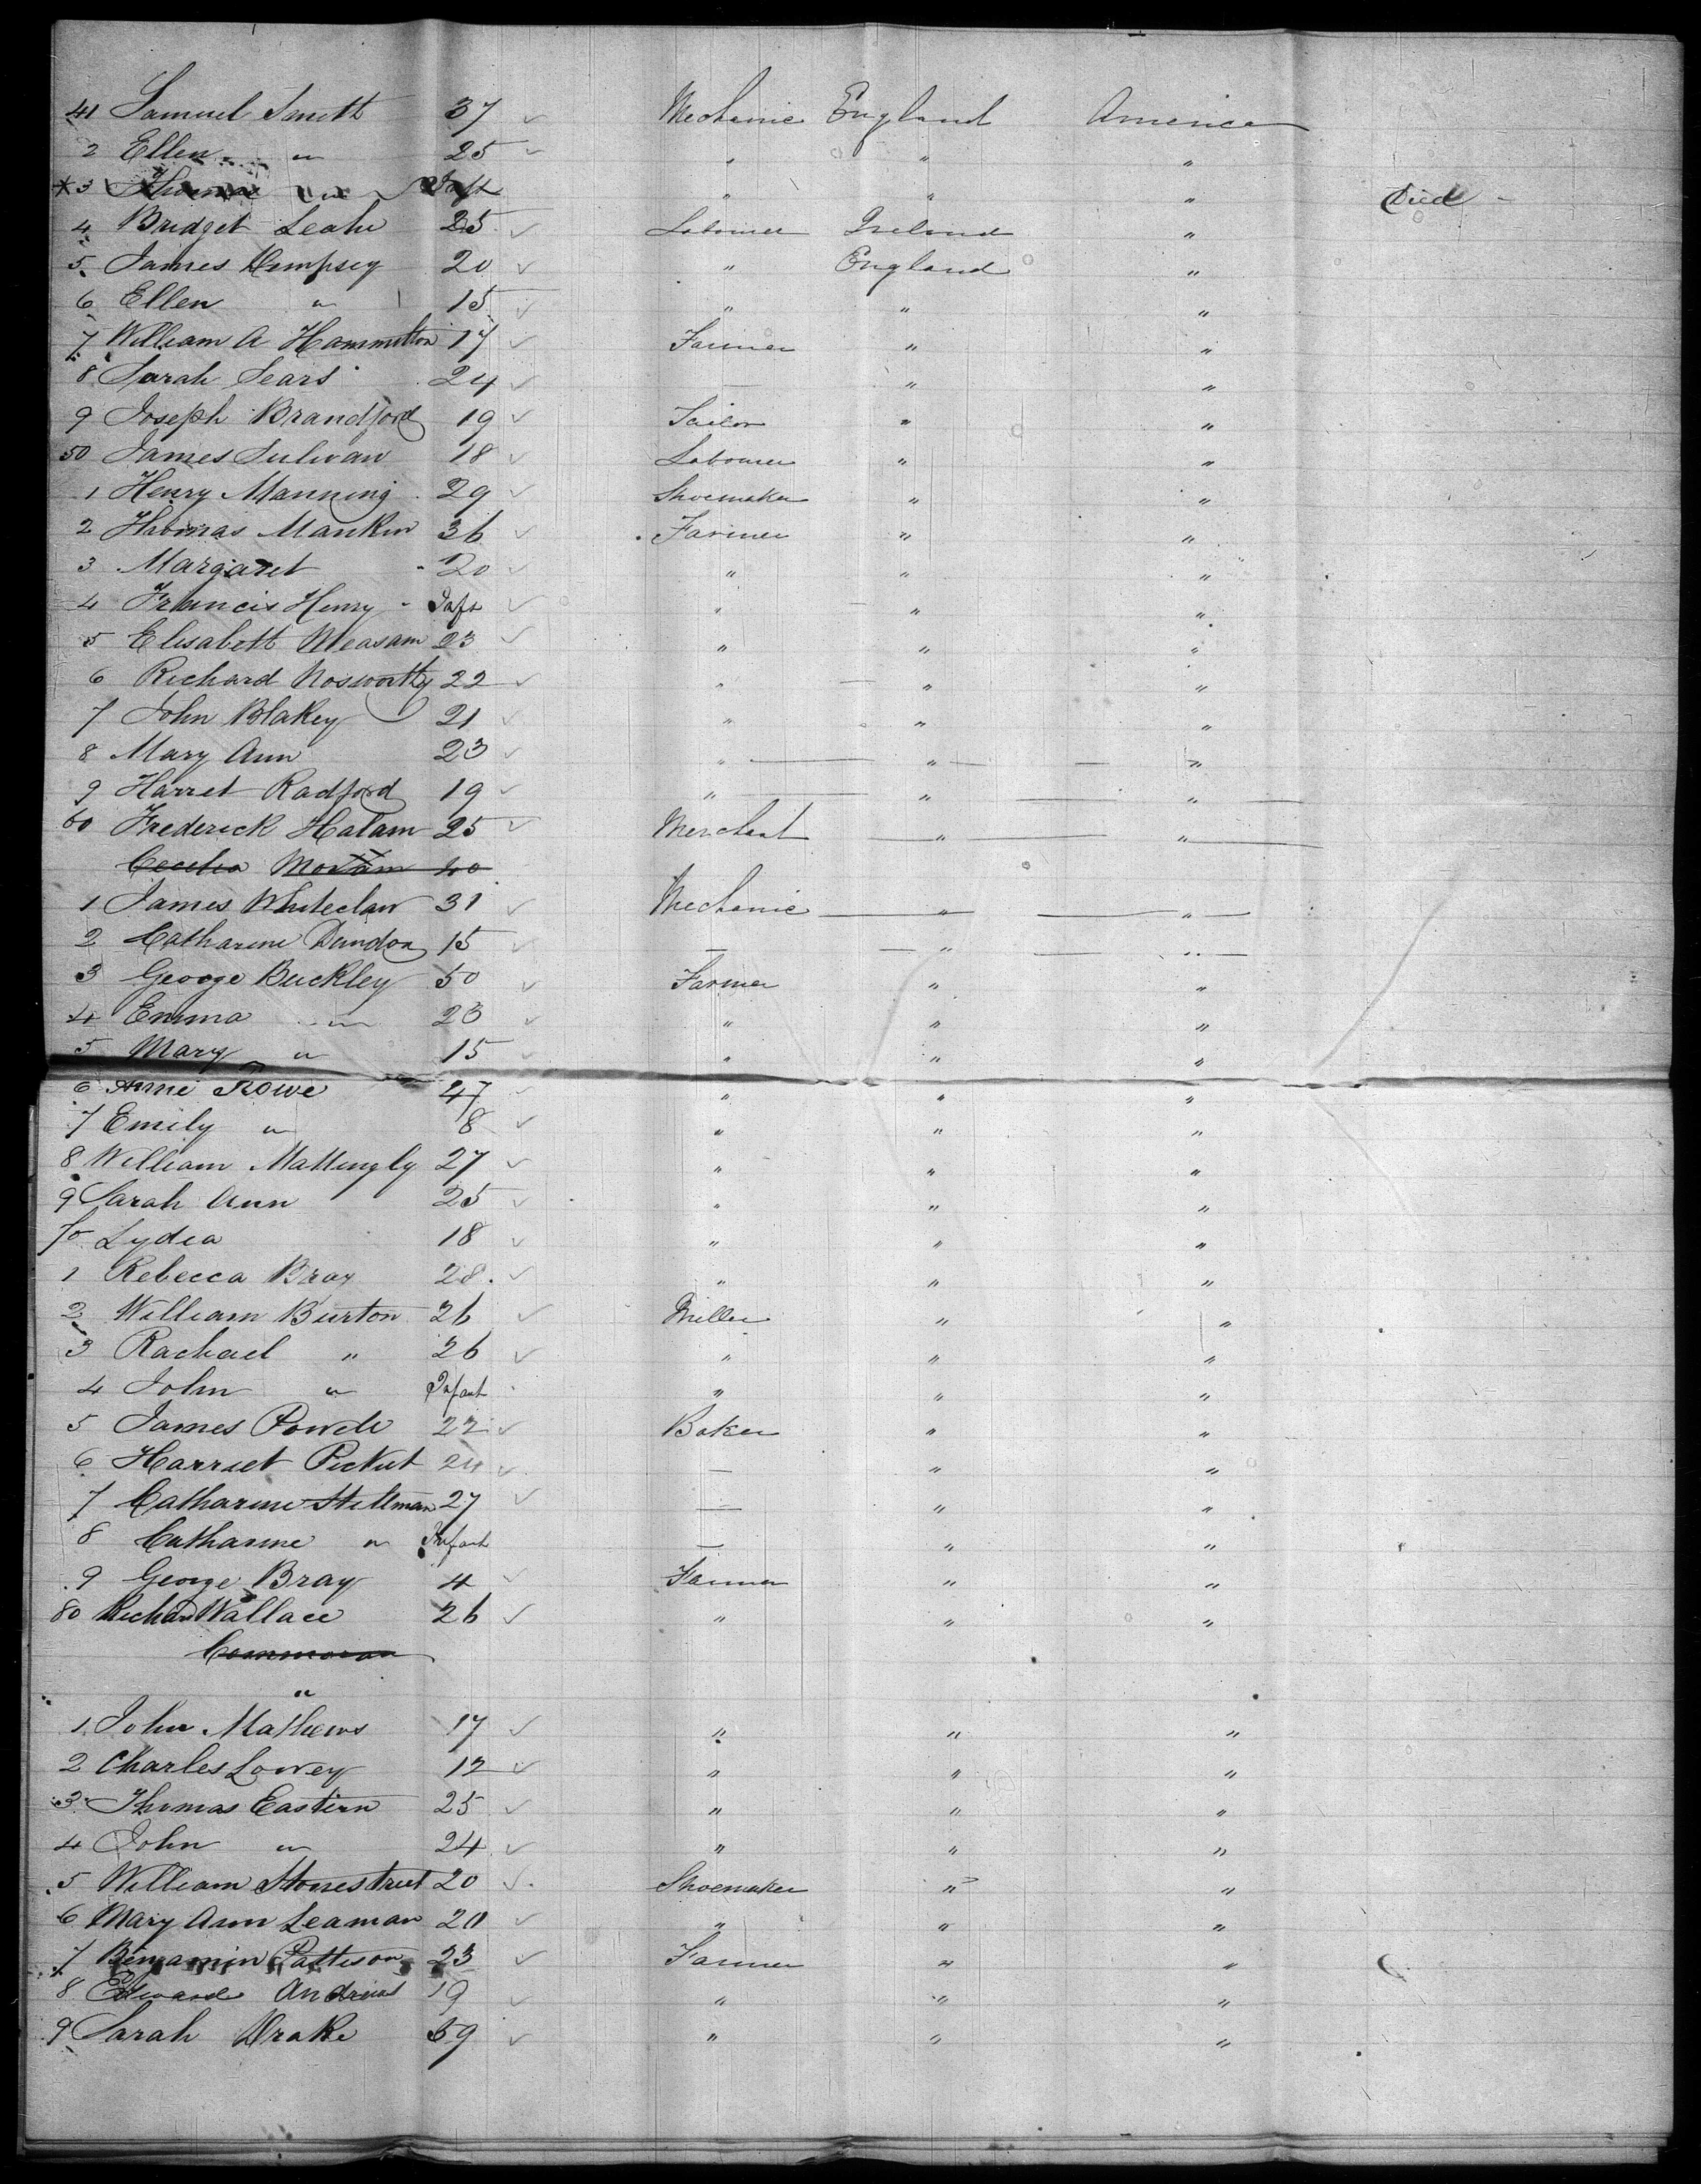 41 Samuel Smith 37 ✓ Mechanic England America
2 Ellen " 25 ✓ " " "
*3 Thomas " Inft " " " Died -
4 Bridget Leahe 25 ✓ Labourer Ireland "
5 James Dempsey 20 ✓ " England "
6 Ellen " 15 ✓ " " "
7 William A Hammutton 17 ✓ Farmer " "
8 Sarah Sears 24 ✓ — " "
9 Joseph Brandford 19 ✓ Tailor " "
50 James Sulivan 18 ✓ Labourer " "
1 Henry Manning 29 ✓ Shoemaker " "
2 Thomas Mankin 36 ✓ Farmer " "
3 Margaret 20 ✓ " " "
4 Francis Henry Inft ✓ " " "
5 Elisabett Measam 23 ✓ " " "
6 Richard Nosworthy 22 ✓ " " "
7 John Blakey 21 ✓ " " "
8 Mary Ann 23 ✓ " " "
9 Harret Radford 19 ✓ " " "
60 Frederick Halam 25 ✓ Merchant " "
Cecelia 40
1 James Whiteclaw 31 ✓ Mechanic " "
2 Catharine Dundon 15 ✓ — " "
3 George Buckley 50 ✓ Farmer " "
4 Emma " 23 ✓ " " "
5 Mary " 15 ✓ " " "
6 Anne Rowe 47 ✓ " " "
7 Emily " 8 ✓ " " "
8 William Mattingly 27 ✓ " " "
9 Sarah Ann 25 ✓ " " "
70 Lydia 18 ✓ " " "
1 Rebecca Bray 28 ✓ " " "
2 William Burton 26 ✓ Miller " "
3 Rachael " 26 ✓ " " "
4 John " Infant " " "
5 James Powell 22 ✓ Baker " "
6 Harriet Picket 24 ✓ — " "
7 Catharine Stillman 27 ✓ — " "
8 Catharine " Infant — " "
9 George Bray 4 ✓ Farmer " "
80 Richard Wallace 26 ✓ " " "
"
1 John Mathews 17 ✓ " " "
2 Charles Lowey 12 ✓ " " "
3 Thomas Eastern 25 ✓ " " "
4 John " 24 ✓ " " "
5 William Stonestreet 20 ✓ Shoemaker " "
6 Mary Ann Seaman 20 ✓ " " "
7 Benjamin Patteson 23 ✓ Farmer " "
8 Edward Andrews 19 ✓ " " "
9 Sarah Drake 59 ✓ " " "